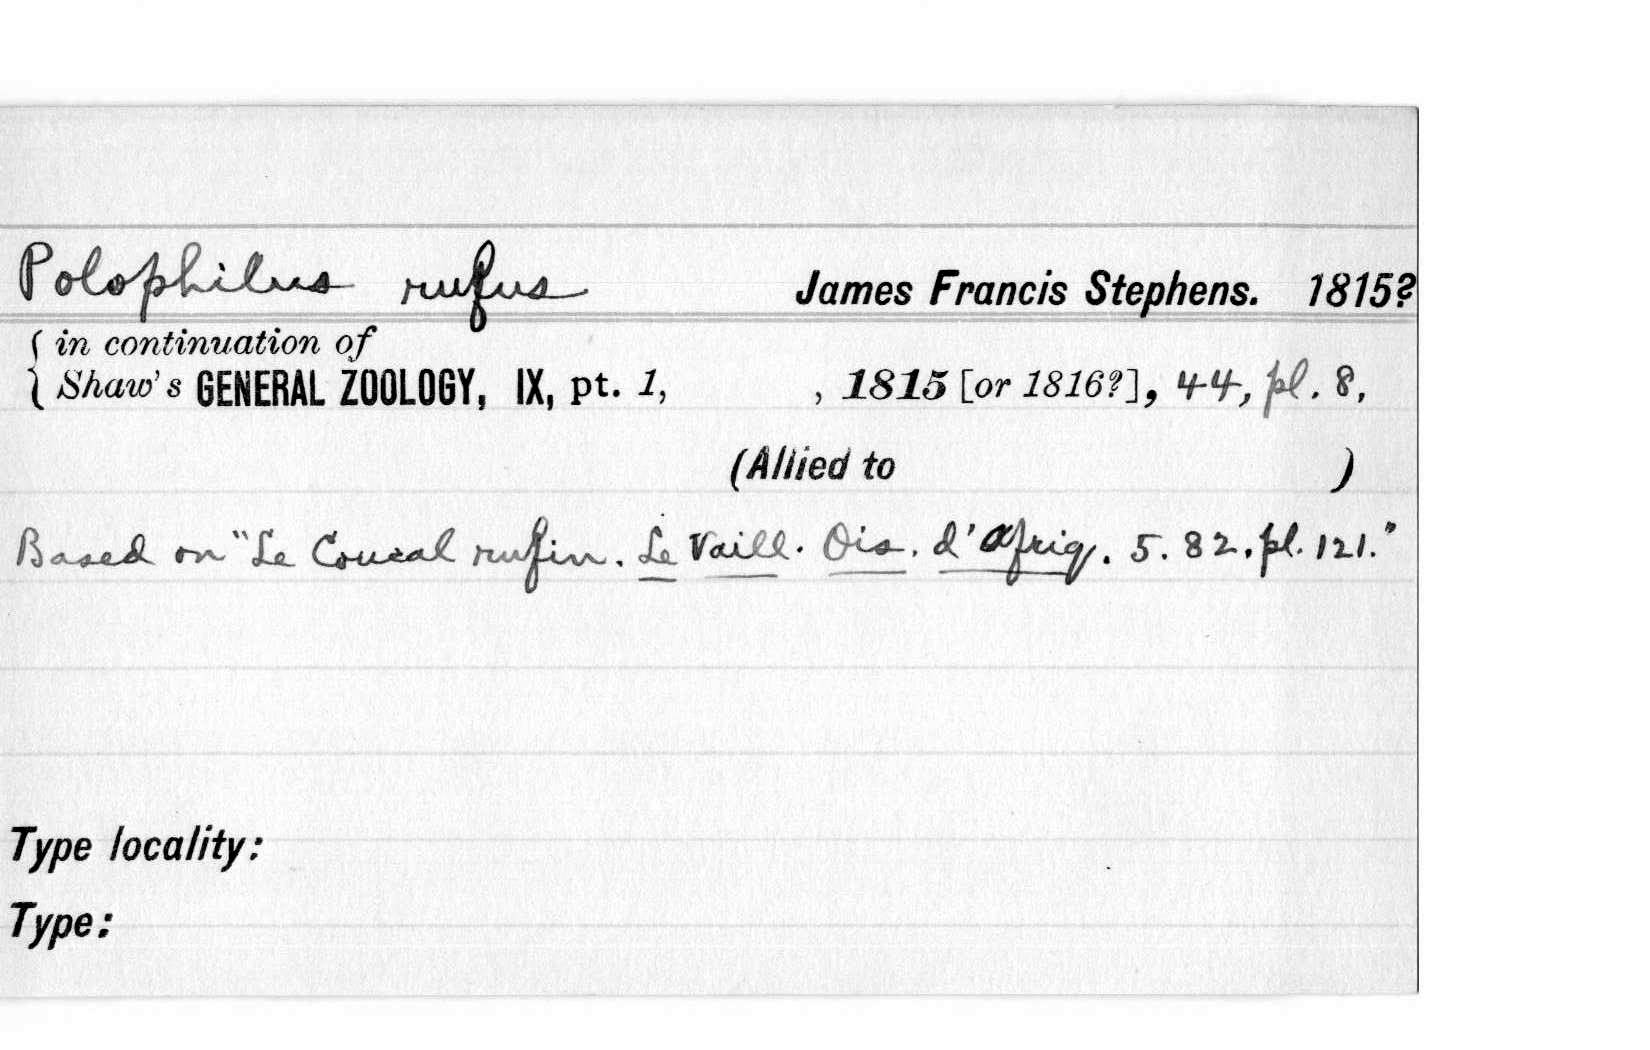 Polophilus rufus James Francis Stephens. 1815?
{ in continuation of
Shaw's GENERAL ZOOLOGY, IX, pt. 1, , 1815 [or 1816?], 44, pl. 8,
(Allied to )
Based on "Le Coucal rufin. Le Vaill. Ois. d'Afriq. 5. 82. pl. 121."
Type locality:
Type: